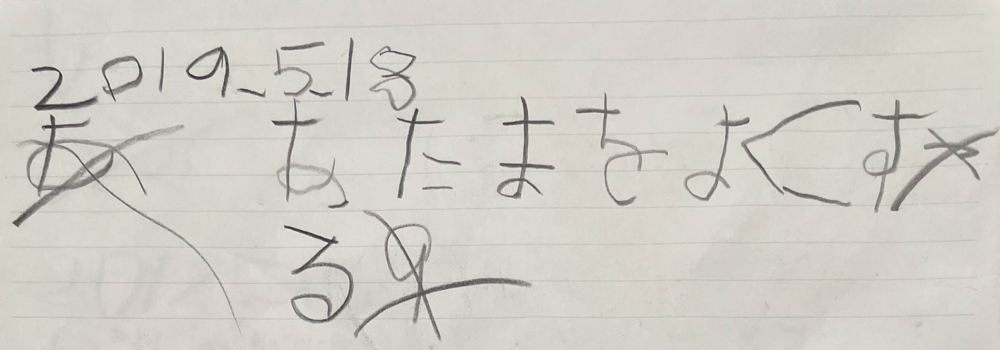 2019.5.18
あたまをよくす
る